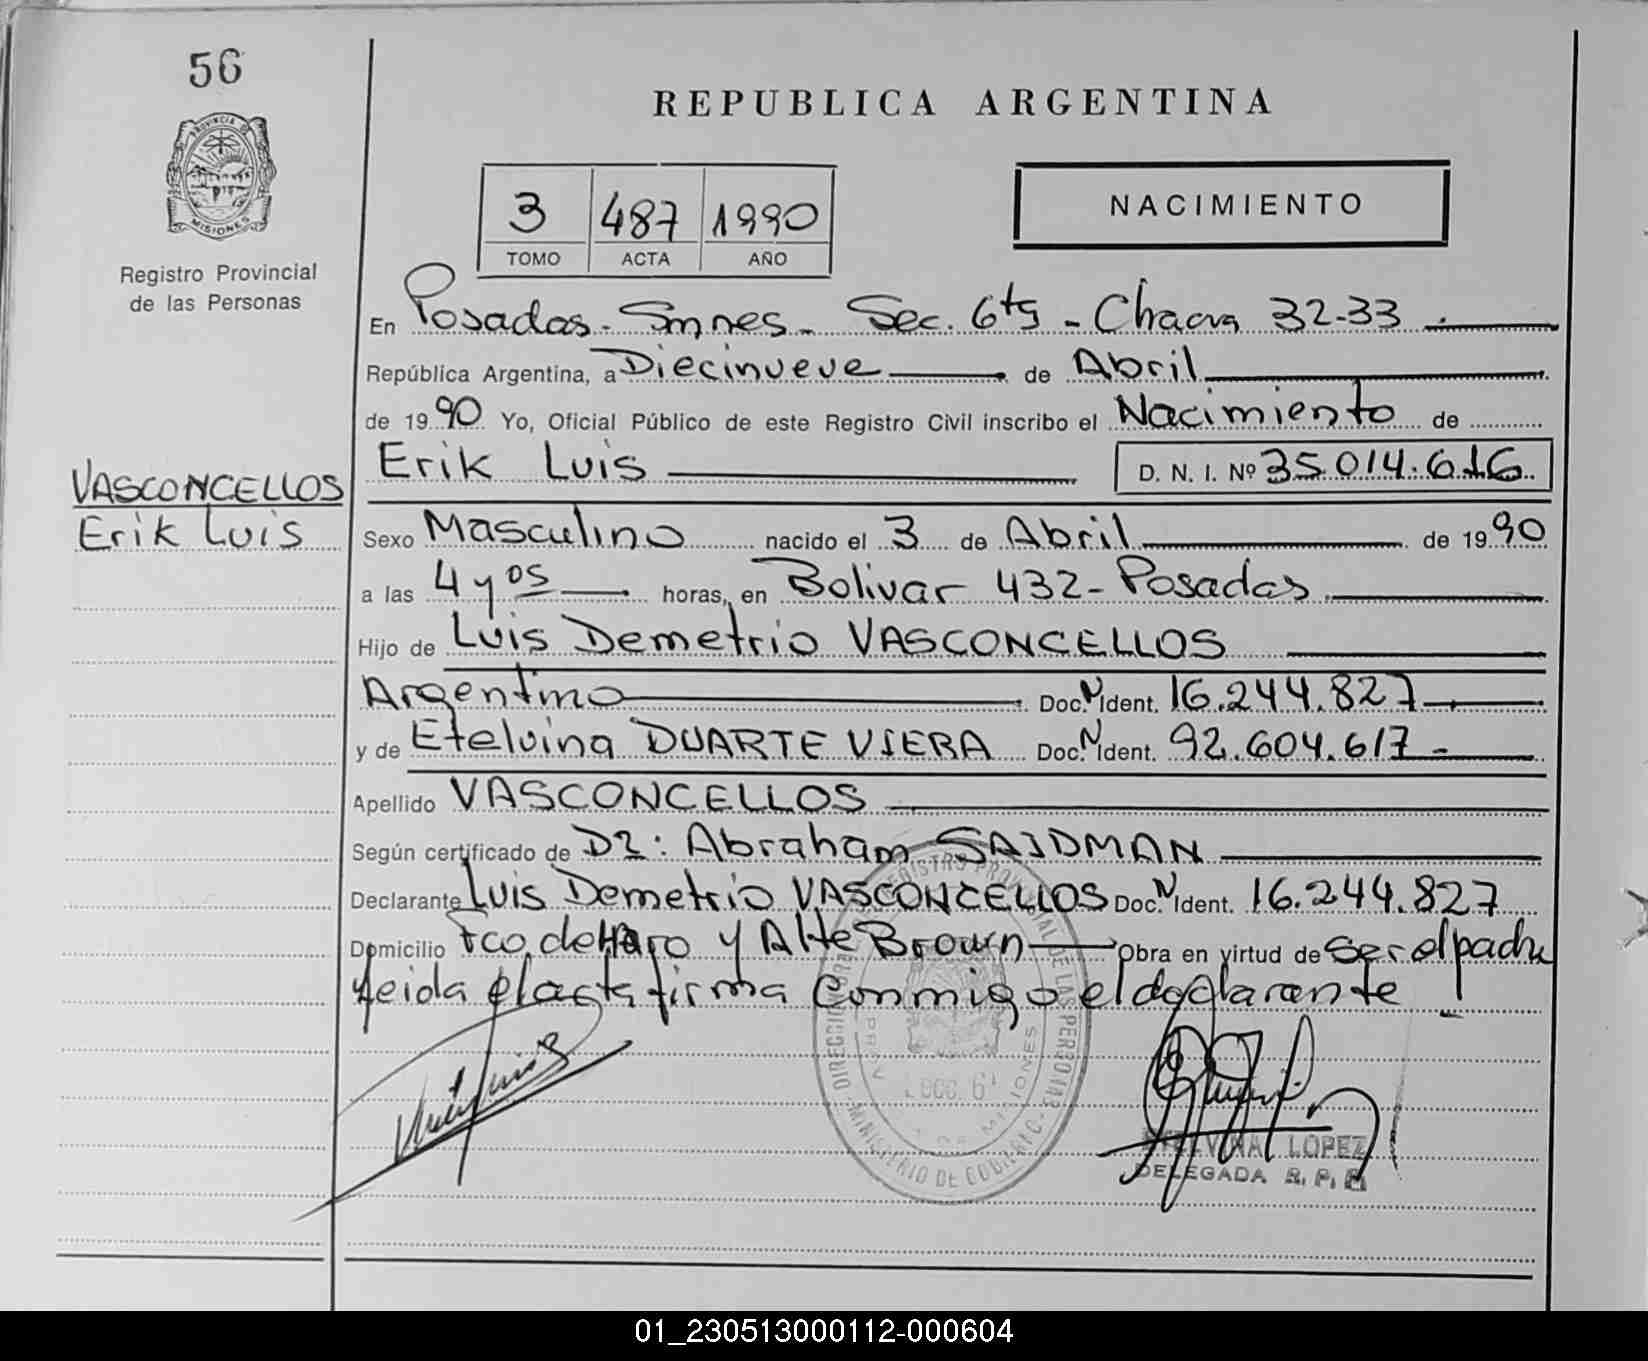 56
REPUBLICA ARGENTINA
PROVINCIA DE
MISIONES
Registro Provincial
de las Personas
3 487 1990
TOMO ACTA AÑO
NACIMIENTO
En Posadas - Smnes - Sec. 6ta - Chacra 32-33
República Argentina, a Diecinueve de Abril
de 1990 Yo, Oficial Público de este Registro Civil inscribo el Nacimiento de
Erik Luis D. N. I. Nº 35.014.616
VASCONCELLOS
Erik Luis
Sexo Masculino nacido el 3 de Abril de 1990
a las 4 y 05 horas, en Bolivar 432 - Posadas
Hijo de Luis Demetrio VASCONCELLOS
Argentino Doc. N Ident. 16.244.827
y de Etelvina DUARTE VIERA Doc. N Ident. 92.604.617
Apellido VASCONCELLOS
Según certificado de Dr: Abraham SAIDMAN
Declarante Luis Demetrio VASCONCELLOS Doc. N Ident. 16.244.827
Domicilio Fco. de Haro y Alte Brown Obra en virtud de ser el padre
leida el acta firma conmigo el declarante
ETELVINA LOPEZ
DELEGADA R. P. P.
01_230513000112-000604